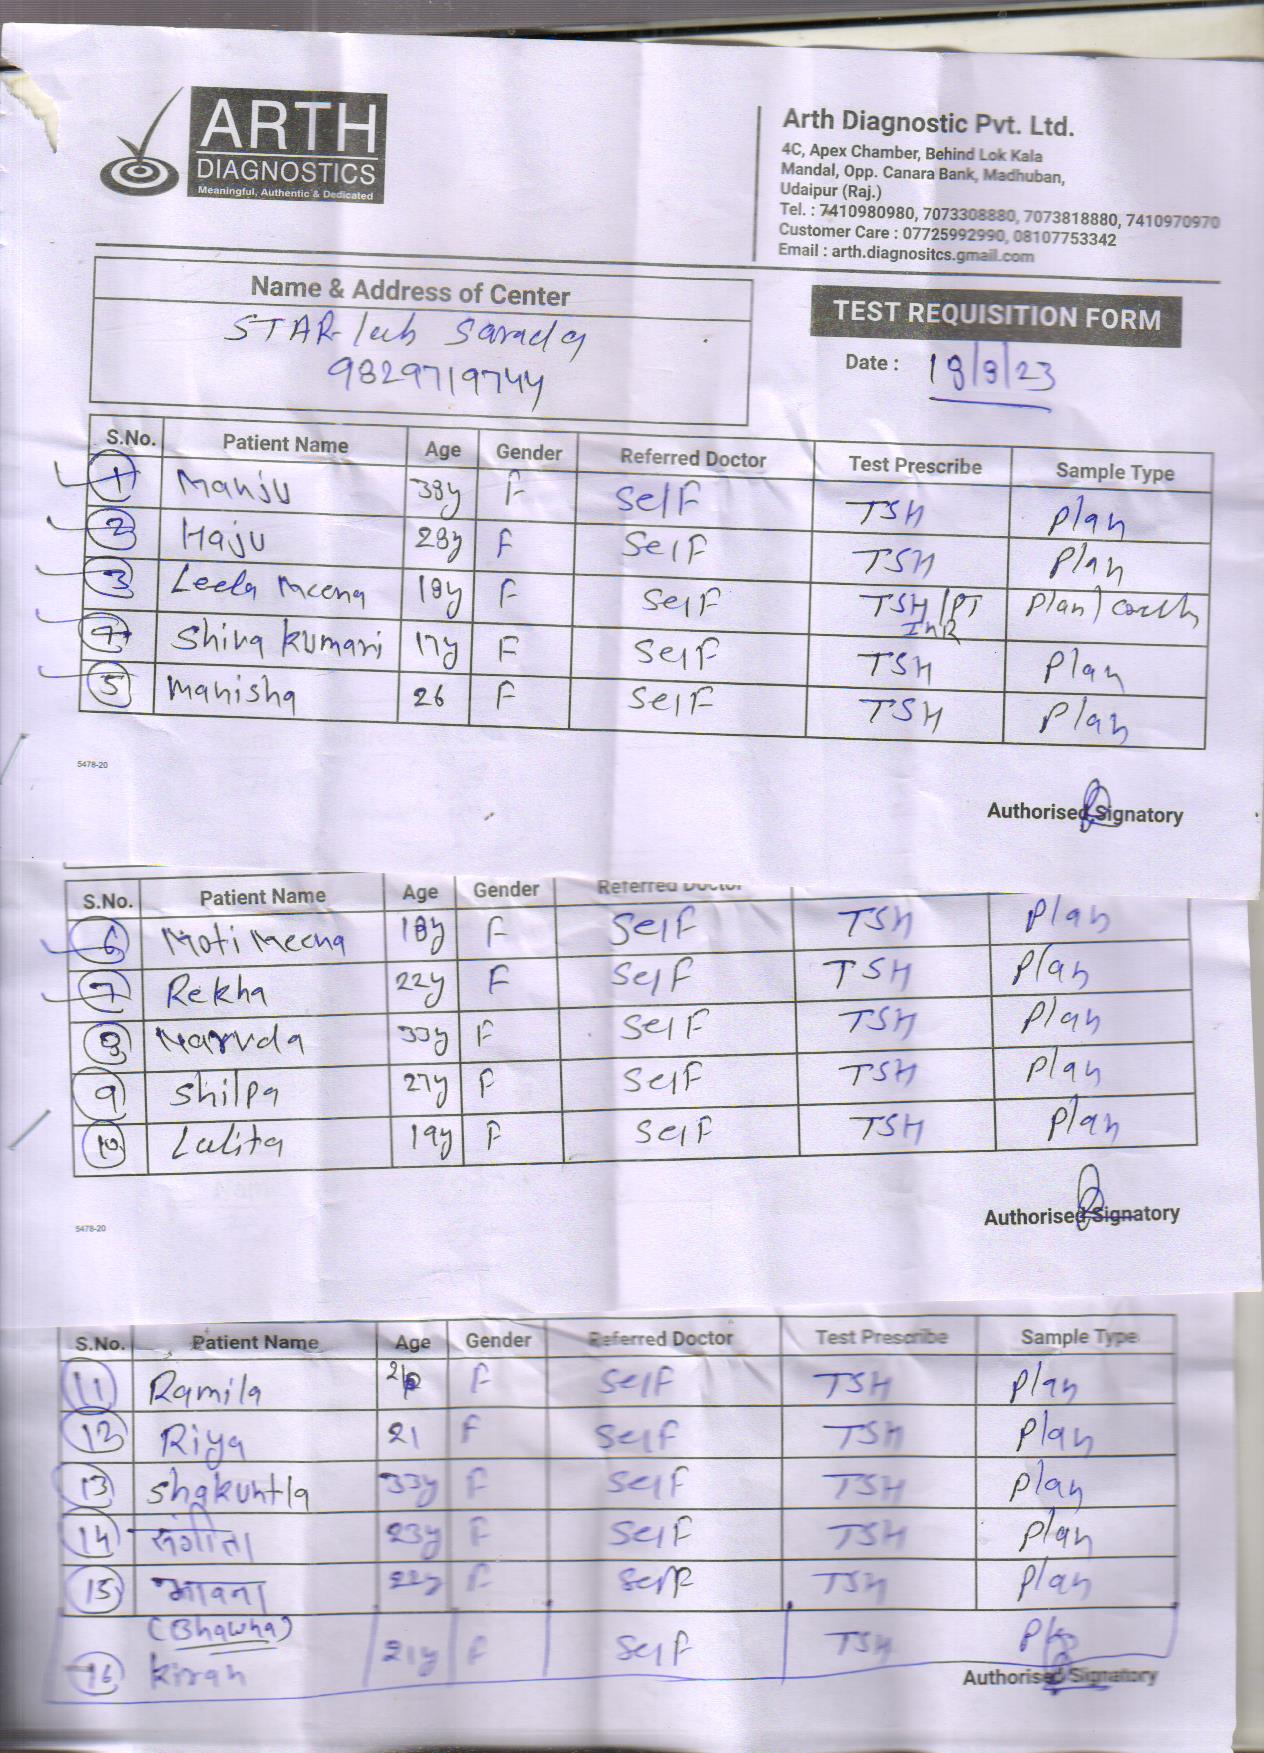 ARTH
DIAGNOSTICS
Meaningful, Authentic & Dedicated
Arth Diagnostic Pvt. Ltd.
4C, Apex Chamber, Behind Lok Kala
Mandal, Opp. Canara Bank, Madhuban,
Udaipur (Raj.)
Tel. : 7410980980, 7073308880, 7073818880, 7410970970
Customer Care : 07725992990, 08107753342
Email : arth.diagnositcs.gmail.com
Name & Address of Center
STAR lab Sarada
9829719744
TEST REQUISITION FORM
Date : 18/8/23
S.No. Patient Name Age Gender Referred Doctor Test Prescribe Sample Type
1 Manju 38y F Self TSH Plan
2 Haju 28y F Self TSH Plan
3 Leela Meena 18y F Self TSH/PT Plan/
INR
4 Shiva kumari 17y F Self TSH Plan
5 Manisha 26 F Self TSH Plan
5478-20
Authorised Signatory
S.No. Patient Name Age Gender Referred Doctor
6 Moti Meena 18y F Self TSH Plan
7 Rekha 22y F Self TSH Plan
8 33y F Self TSH Plan
9 Shilpa 27y F Self TSH Plan
10 Lalita 19y F Self TSH Plan
5478-20
Authorised Signatory
S.No. Patient Name Age Gender Referred Doctor Test Prescribe Sample Type
11 Ramila F Self TSH Plan
12 Riya 21 F Self TSH Plan
13 Shakuntla 33y F Self TSH Plan
14 संगीता 23y F Self TSH Plan
15 भावना 22y F Self TSH Plan
(Bhawna)
16 kiran 21y F Self TSH
Authorised Signatory